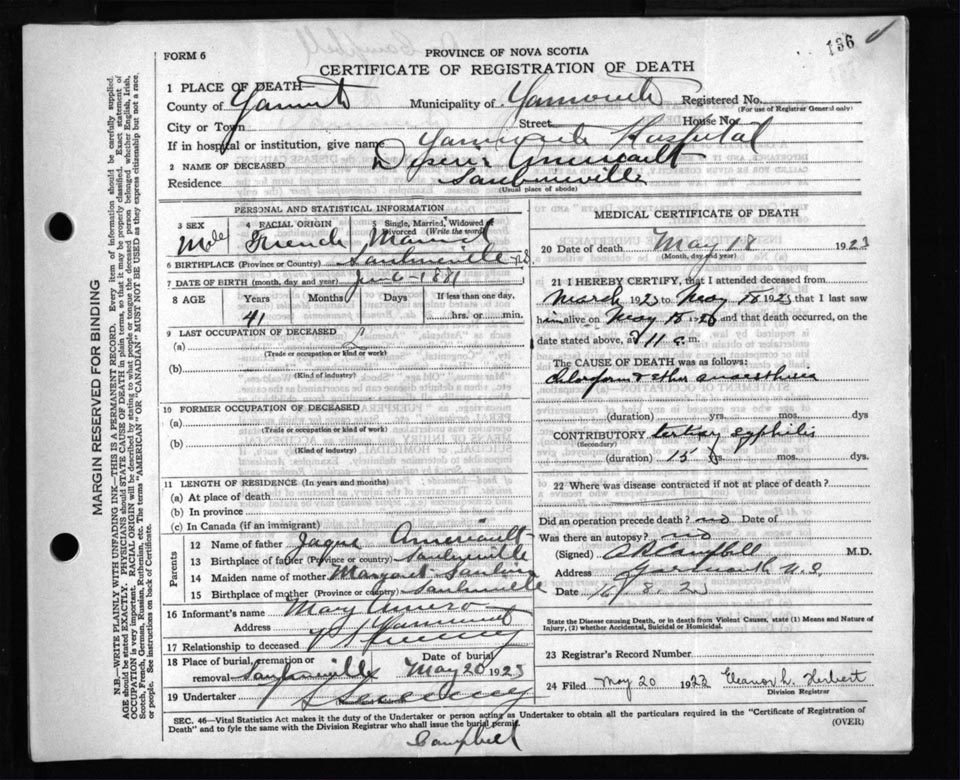 136
FORM 6
PROVINCE OF NOVA SCOTIA
CERTIFICATE OF REGISTRATION OF DEATH
1 PLACE OF DEATH—
County of Yarmouth Municipality of Yarmouth Registered No.
(For use of Registrar General only)
City or Town Street House No.
If in hospital or institution, give name Yarmouth Hospital
2 NAME OF DECEASED Amirault
Residence Saulnierville
(Usual place of abode)
PERSONAL AND STATISTICAL INFORMATION
3 SEX 4 RACIAL ORIGIN 5 Single, Married, Widowed
Divorced (Write the word)
Male French Married
6 BIRTHPLACE (Province or Country) Saulnierville N.S.
7 DATE OF BIRTH (month, day and year) 6-1881
8 AGE Years Months Days If less than one day,
41 hrs. or min.
9 LAST OCCUPATION OF DECEASED
(a)
(Trade or occupation or kind or work)
(b)
(Kind of industry)
10 FORMER OCCUPATION OF DECEASED
(a)
(Trade or occupation or kind of work)
(b)
(Kind of industry)
11 LENGTH OF RESIDENCE (In years and months)
(a) At place of death
(b) In province
(c) In Canada (if an immigrant)
Parents
12 Name of father Amirault
13 Birthplace of father (Province or country) Saulnierville
14 Maiden name of mother Margaret Saulnier
15 Birthplace of mother (Province or country) Saulnierville
16 Informant's name Mary
Address Yarmouth
17 Relationship to deceased
18 Place of burial, cremation or Date of burial
removal Saulnierville May 20 1923
19 Undertaker Sweeney
MEDICAL CERTIFICATE OF DEATH
20 Date of death May 18 1923
(Month, day and year)
21 I HEREBY CERTIFY, that I attended deceased from
March 1923 to May 18 1923 that I last saw
him alive on May 18 1923 and that death occurred, on
date stated above, at 11 a.m.
The CAUSE OF DEATH was as follows:
Chloroform & ether anaesthesia
(duration) yrs. mos. dys
CONTRIBUTORY tertiary syphilis
(Secondary)
(duration) 15 yrs. mos. dys
22 Where was disease contracted if not at place of death?
Did an operation precede death? no Date of
Was there an autopsy? no
(Signed) Campbell M.D.
Address Yarmouth N.S.
Date
State the Disease causing Death, or in death from Violent Causes, state (1) Means and Nature of Injury, (2) whether Accidental, Suicidal or Homicidal.
23 Registrar's Record Number
24 Filed May 20 1923 Eleanor L. Herbert
Division Registrar
SEC. 46—Vital Statistics Act makes it the duty of the Undertaker or person acting as Undertaker to obtain all the particulars required in the "Certificate of Registration of
Death" and to fyle the same with the Division Registrar who shall issue the burial permit.
(OVER)
Campbell
MARGIN RESERVED FOR BINDING
N.B.—WRITE PLAINLY WITH UNFADING INK—THIS IS A PERMANENT RECORD. Every item of information should be carefully supplied.
AGE should be stated EXACTLY. PHYSICIANS should STATE CAUSE OF DEATH in plain terms, so that it may be properly classified. Exact statement of
OCCUPATION is very important. RACIAL ORIGIN will be described by stating to what people or tongue the deceased person belonged whether English, Irish,
Scotch, French, German, Russian, Ruthenian, etc. The terms "AMERICAN" OR "CANADIAN" MUST NOT BE USED as they express citizenship but not a race
or people. See instructions on back of Certificate.